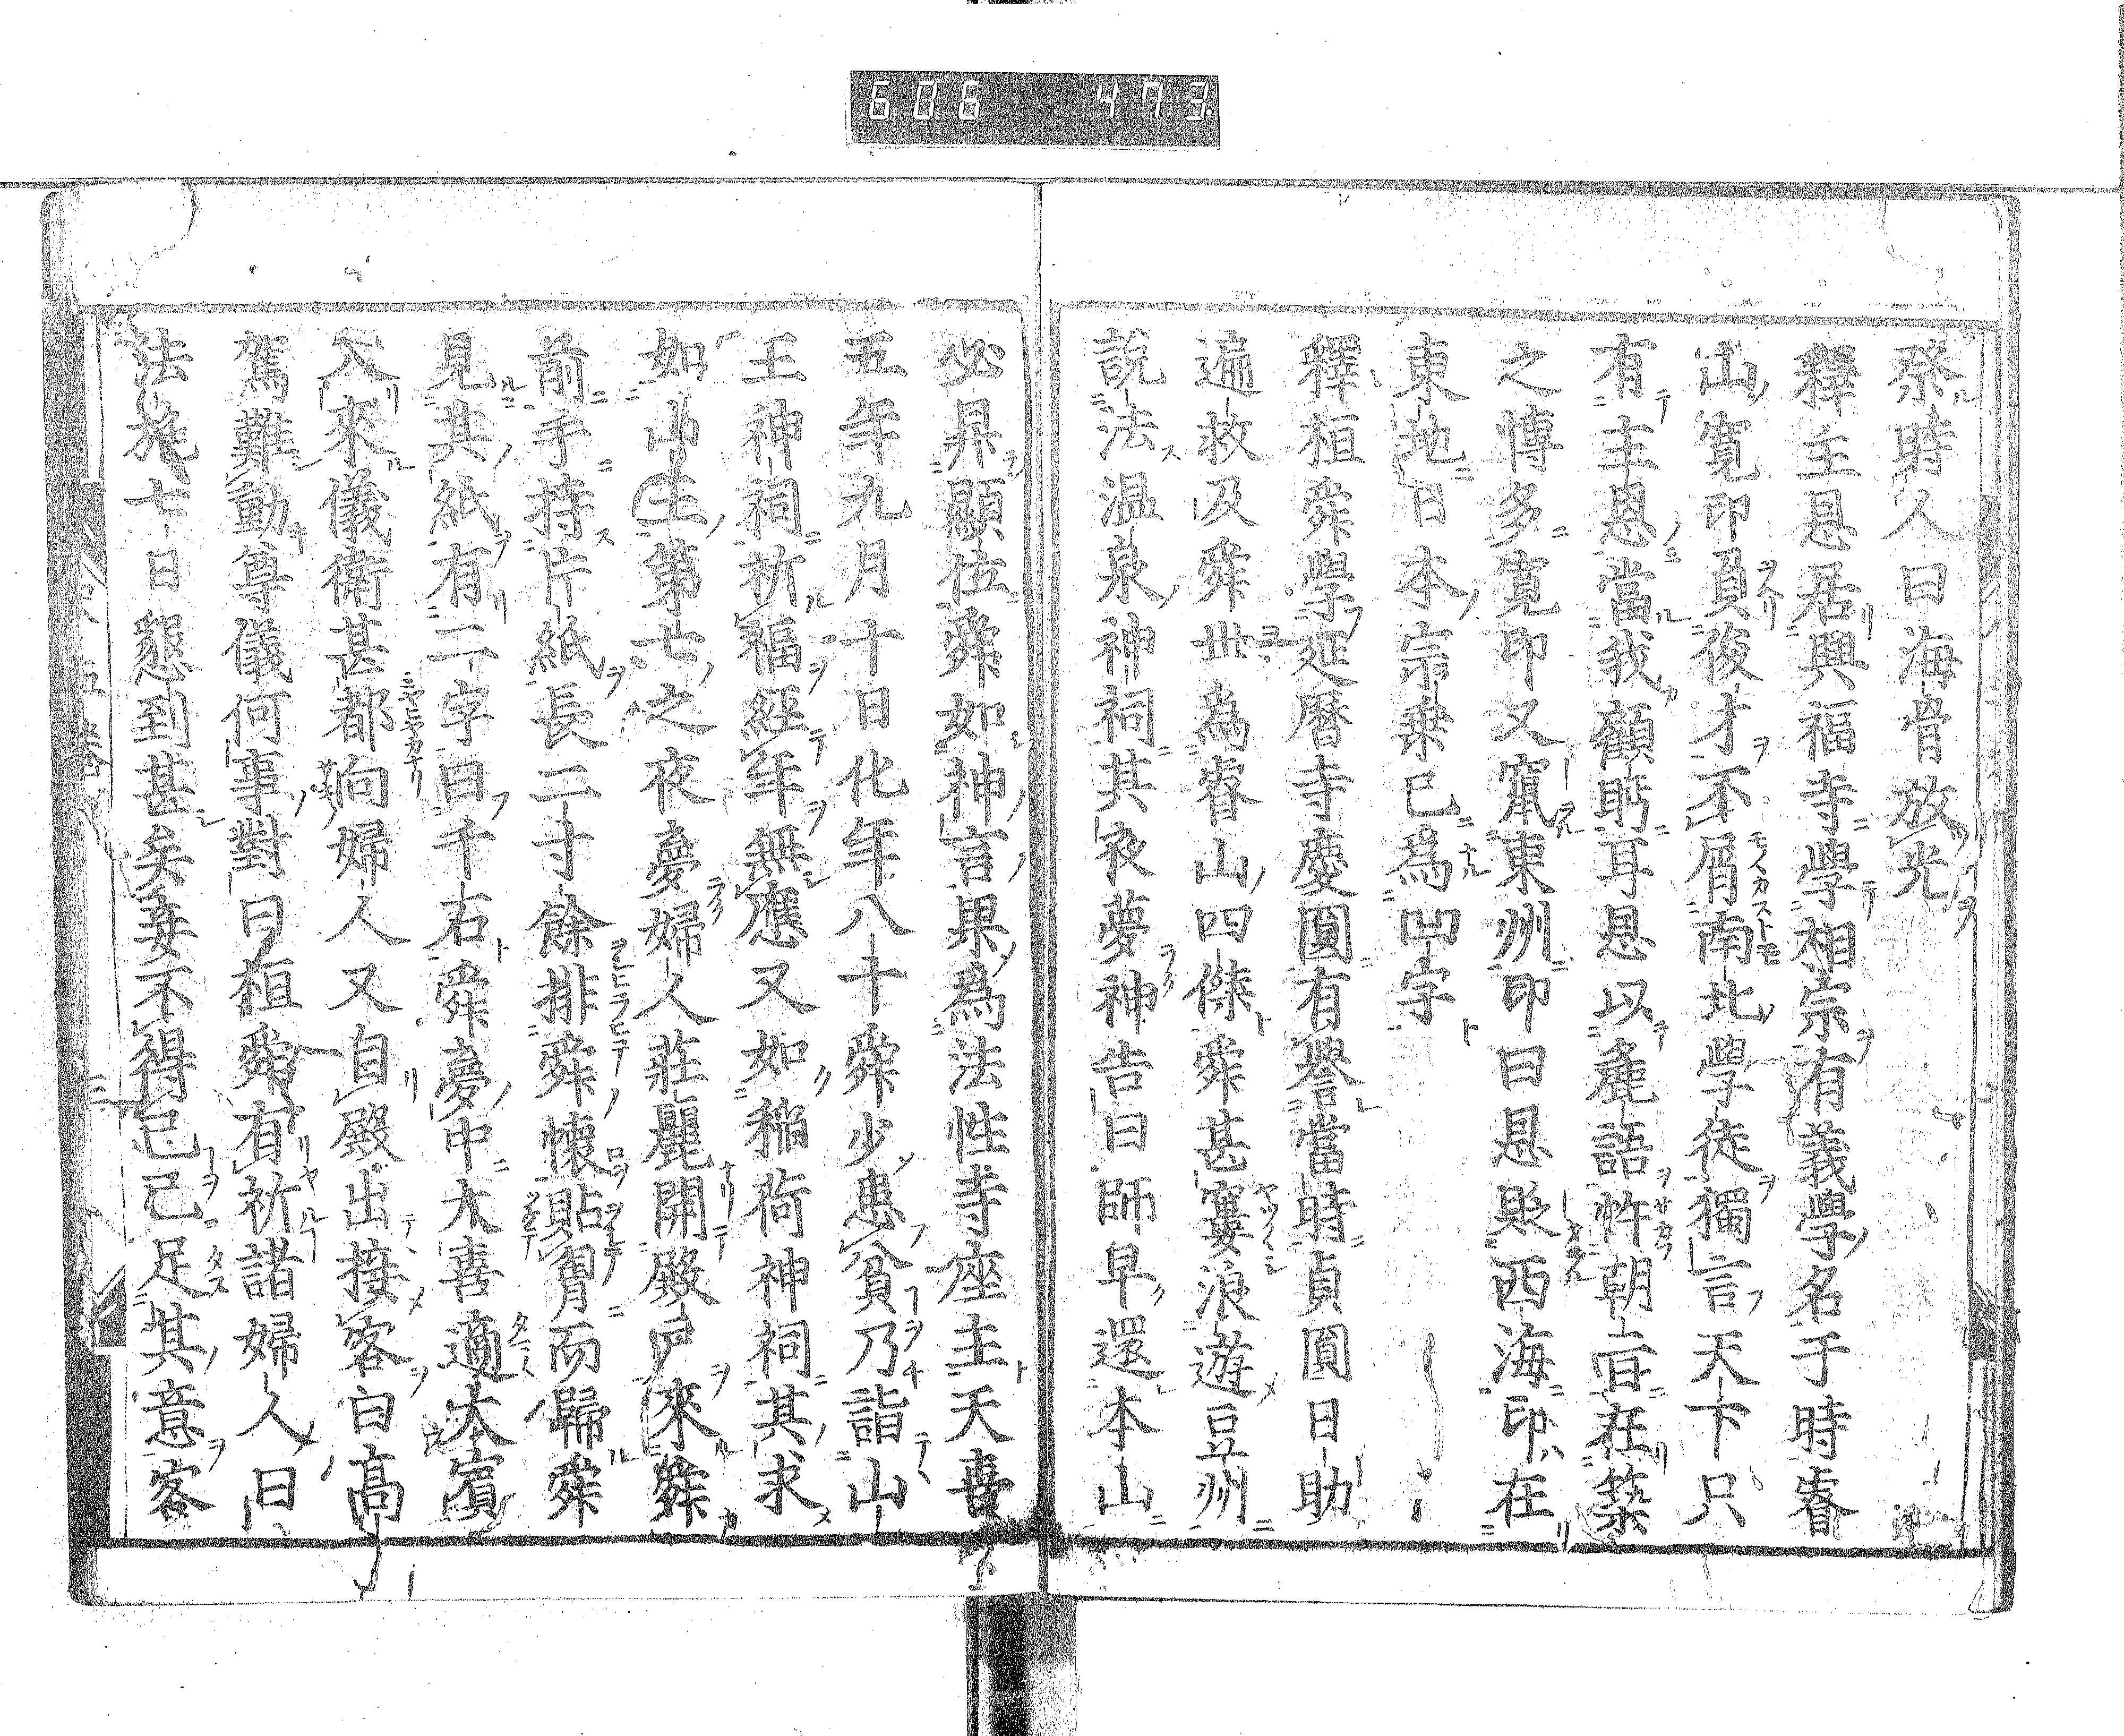 606 493
祭時人曰海骨放光
釋主恩居興福寺學相宗有義學名于時睿
山寛印負俊才不屑南北學徒獨言天下只
有主恩當我顧眄耳恩以麁語忤朝旨在築
之愽多寛印又竄東州印曰恩貶西海印在
東地日本宗乗已爲凹字
釋桓舜學延曆寺慶圓有譽當時貞圓日助
遍救及舜世爲睿山四傑舜甚窶浪遊豆州
說法温泉神祠其夜夢神告曰師早還本山
必昇顯位舜如神言果爲法性寺座主天喜
五年九月十日化年八十舜少患貧乃詣山
王神祠祈福經年無應又如稲荷神祠其求
如山王第七之夜夢婦人莊麗開殿戸來舜
前手持片紙長二寸餘排舜懷貼胷而歸舜
見其紙有二字曰千石舜夢中大喜適大賓
入來儀衛甚都向婦人又自殿出接客白高
駕難動尊儀何事對曰桓舜有祈諸婦人曰
法施七日懇到甚矣妾不得已己足其意客